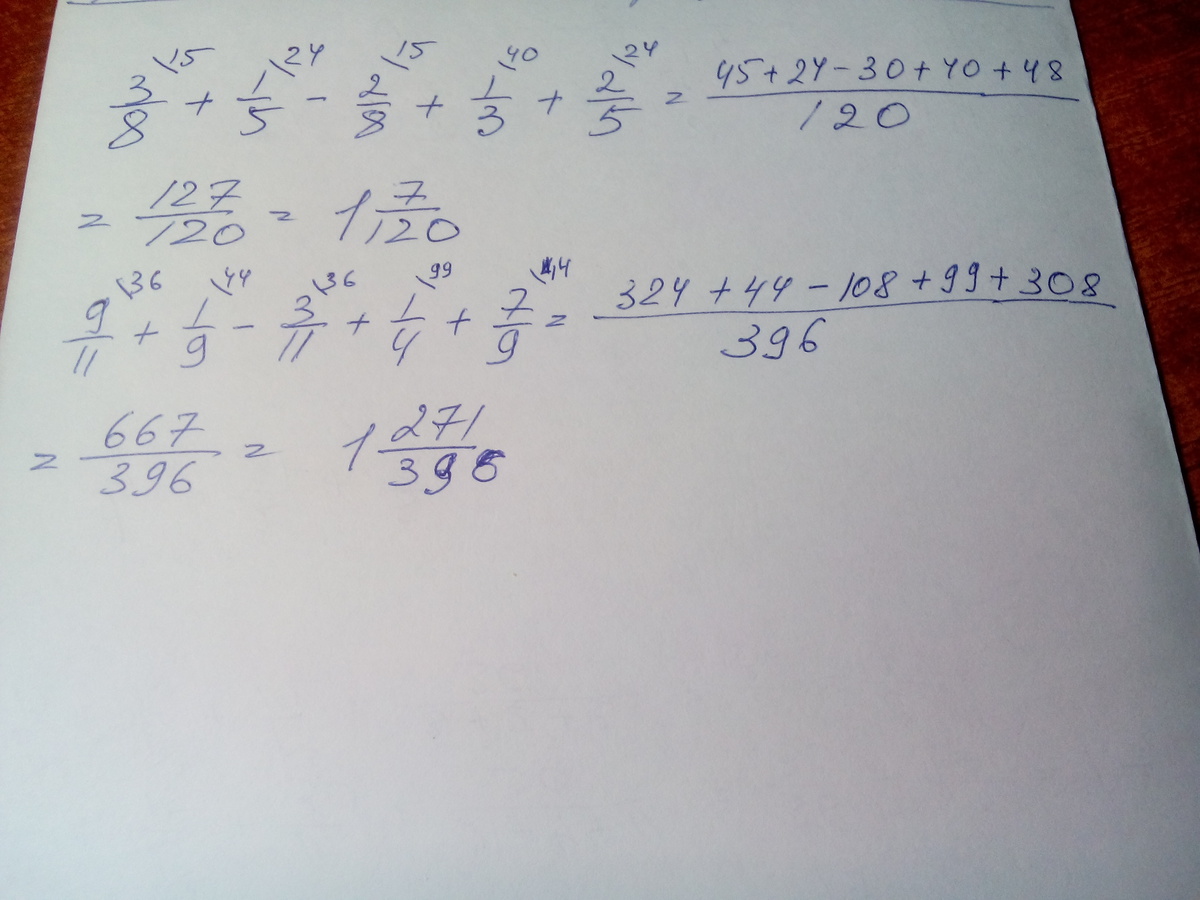 3/8 \15 + 1/5 \24 - 2/8 \15 + 1/3 \40 + 2/5 \24 = 45+24-30+40+48/120
= 127/120 = 1 7/120
9/11 \36 + 1/9 \44 - 3/11 \36 + 1/4 \99 + 7/9 \44 = 324+44-108+99+308/396
= 667/396 = 1 271/396